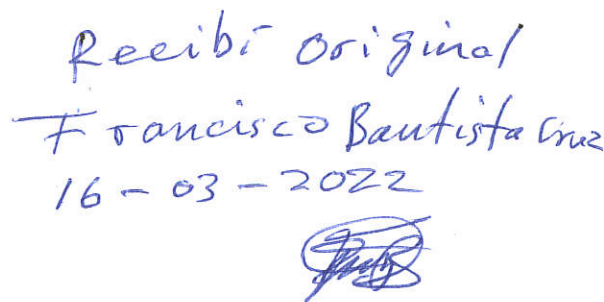 Recibí original
Francisco Bautista Cruz
16-03-2022